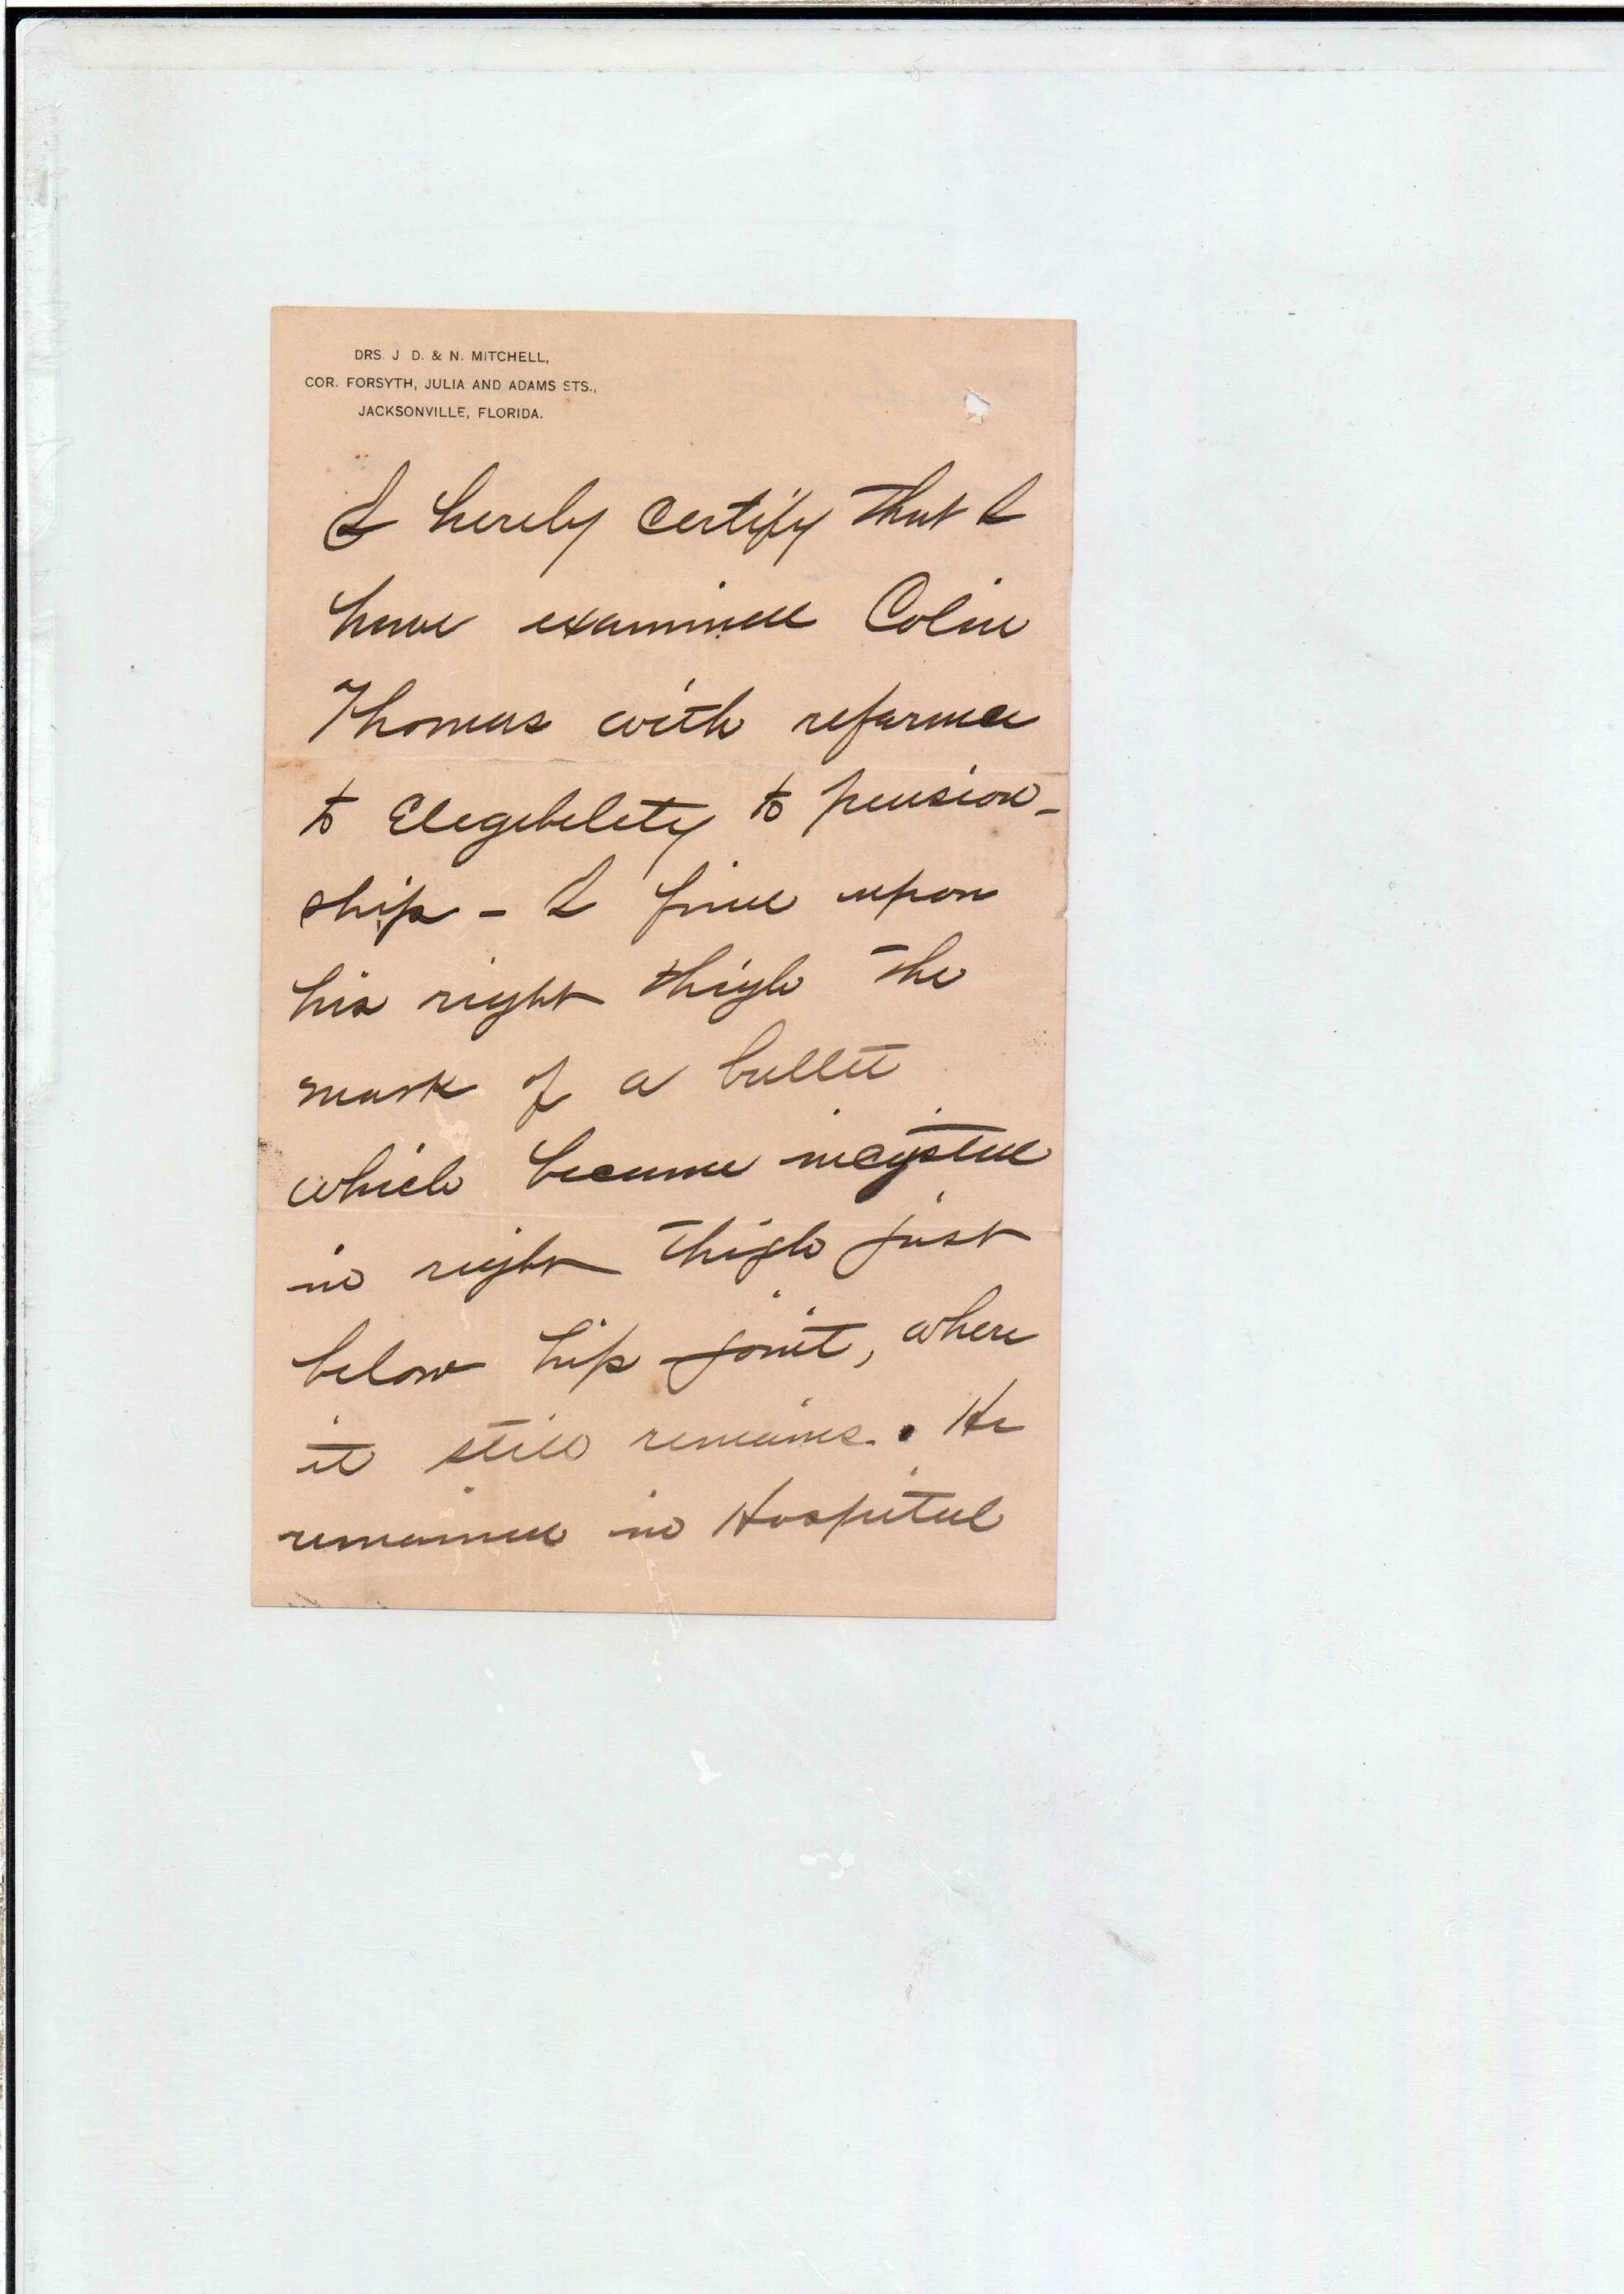 DRS. J. D. & N. MITCHELL,
COR. FORSYTH, JULIA AND ADAMS STS.,
JACKSONVILLE, FLORIDA.
I hereby certify that I
have examined Colin
Thomas with referance
to Elegebelety to pension-
ship - I find upon
his right thigh the
mark of a bullet
which became incysted
in right thigh just
below hip joint, where
it still remains. He
remained in Hospital